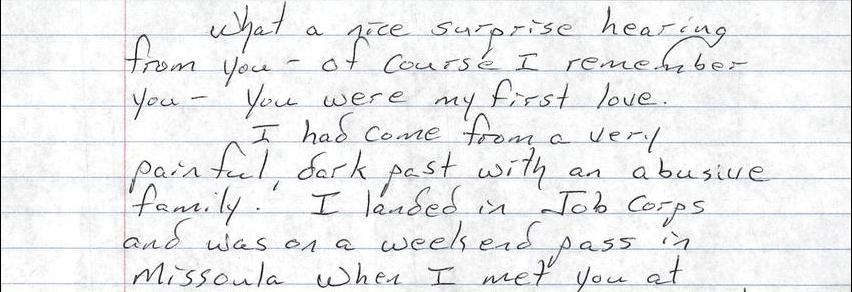 What a nice surprise hearing
from you - of course I remember
you - You were my first love.
I had come from a very
painful, dark past with an abusive
family. I landed in Job Corps
and was on a weekend pass in
Missoula when I met you at